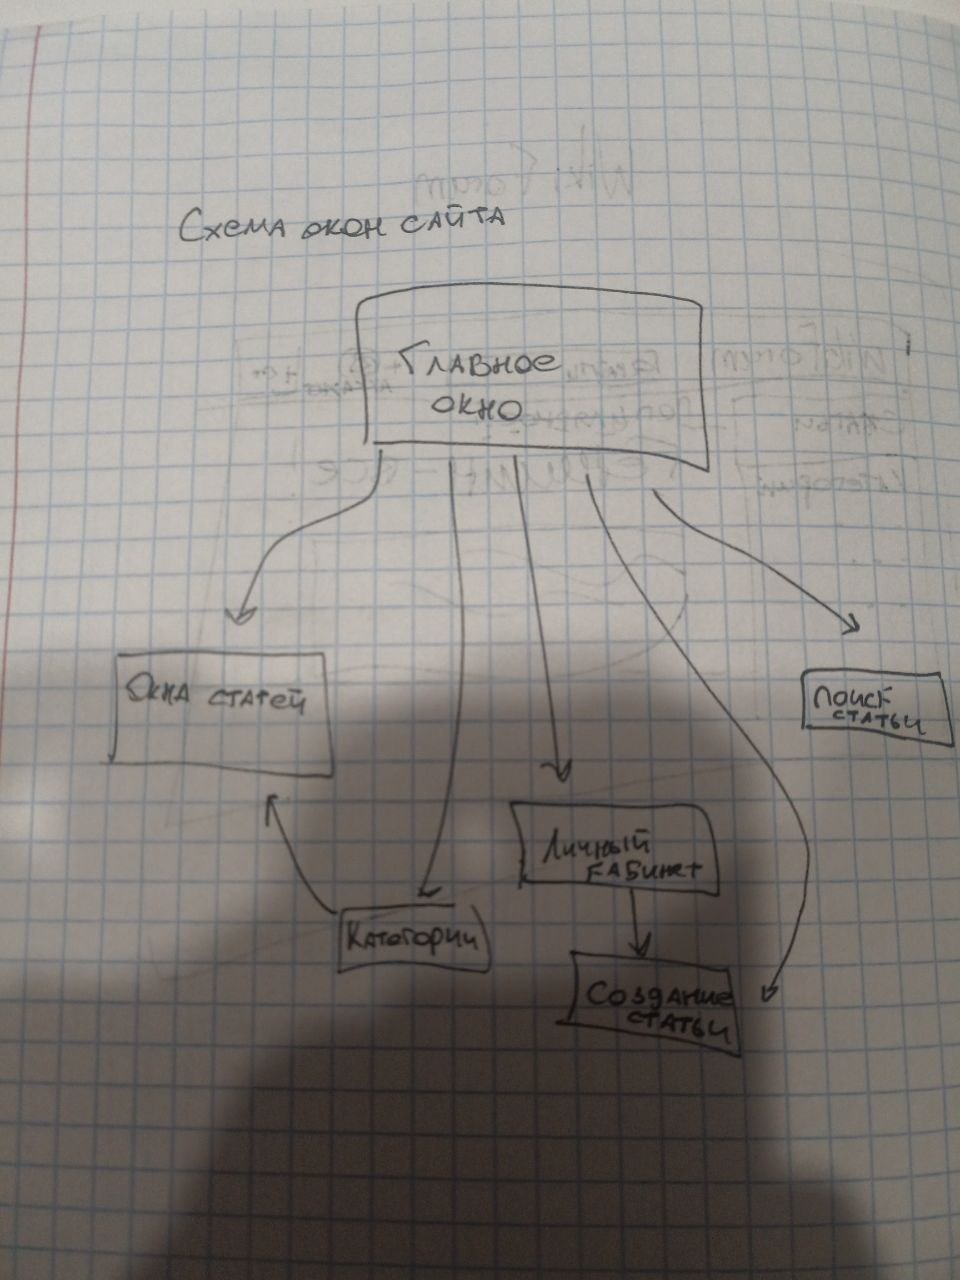 Схема окон сайта
Главное
окно
Окна статей
Поиск
статьи
Личный
кабинет
Категории
Создание
статьи